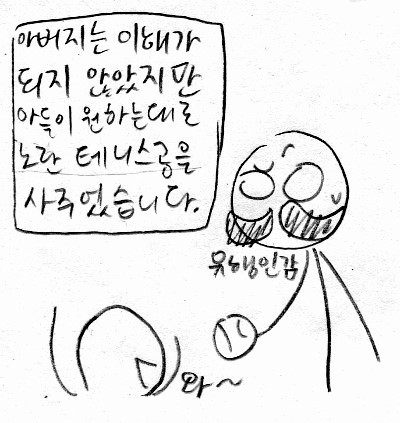 아버지는 이해가
되지 않았지만
아들이 원하는대로
노란 테니스공을
사주었습니다.
유행인감
와~